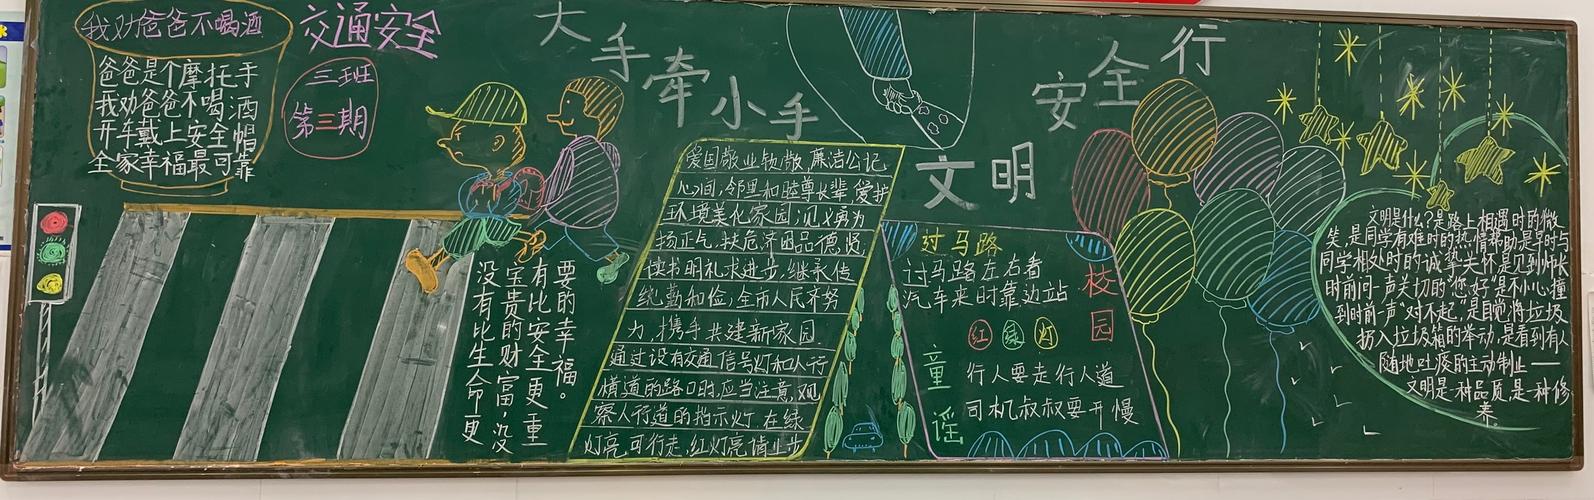 我劝爸爸不喝酒
爸爸是个摩托手
我劝爸爸不喝酒
开车戴上安全帽
全家幸福最可靠
交通安全
三班
第三期
大手牵小手
安全行
文明
要的幸福。
有比安全更重
宝贵的财富,没
没有比生命更
爱国敬业钦敬,廉洁公记
心间,邻里和睦尊长辈,爱护
环境美化家园;见义勇为
扬正气,扶危济困品德览,
读书明礼求进步,继承传
统勤和俭;全市人民齐努
力,携手共建新家园.
通过设有交通信号灯和人行
横道的路口时,应当注意,观
察人行道的指示灯.在绿
灯亮可行走,红灯亮请止步
过马路
过马路左右看
汽车来时靠边站
红绿灯
行人要走行人道
司机叔叔要开慢
校园
童谣
文明是什么?是路上相遇时的微
笑,是同学有难时的热情帮助是平时与
同学相处时的诚挚关怀是见到师长
时前问一声关切的"您好"是不小心撞
到时前一声"对不起",是自觉将垃圾
扔入垃圾箱的举动,是看到有人
随地吐痰的主动制止——
文明是一种品质是一种修
养